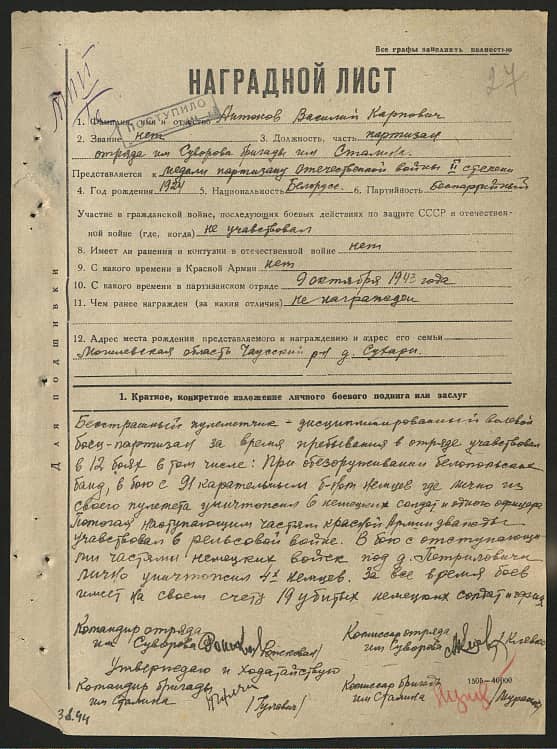 Все графы заполнять полностью
27
НАГРАДНОЙ ЛИСТ
ПОСТУПИЛО
1. Фамилия, имя и отчество Антонов Василий Карпович
2. Звание нет 3. Должность, часть партизан
отряда им Суворова бригады им Сталина
Представляется к медали партизану отечественной войны II степени
4. Год рождения 1924 5. Национальность Белорусс. 6. Партийность Беспартийный
Участие в гражданской войне, последующих боевых действиях по защите СССР и отечествен-
ной войне (где, когда) не учавствовал
8. Имеет ли ранения и контузии в отечественной войне нет
9. С какого времени в Красной Армии нет
10. С какого времени в партизанском отряде 9 октября 1943 года
11. Чем ранее награжден (за какия отличия) не награжден
12. Адрес места рождения представляемого к награждению и адрес его семьи
Могилевская область Чаусский р-н д. Сухари.
Для подшивки
1. Краткое, конкретное изложение личного боевого подвига или заслуг
Бесстрашный пулеметчик - дисциплинированный волевой
боец-партизан за время пребывания в отряде учавствовал
в 12 боях в том числе: При обезоруживании белопольских
банд, в бою с 91 карательным б-ном немцев где лично из
своего пулемета уничтожил 6 немецких солдат и одного офицера
Помогая наступающим частям красной Армии дважды
учавствовал в рельсовой войне. В бою с отступающи-
ми частями немецких войск под д. Петриловичи
лично уничтожил 4х немцев. За все время боев
имеет на своем счету 19 убитых немецких солдат и
Командир отряда
им Суворова
Комиссар отряда
им Суворова
Утверждаю и Ходатайствую
Командир бригады
им Сталина /Гулевич/
Комиссар бригады
им Сталина
1505-40000